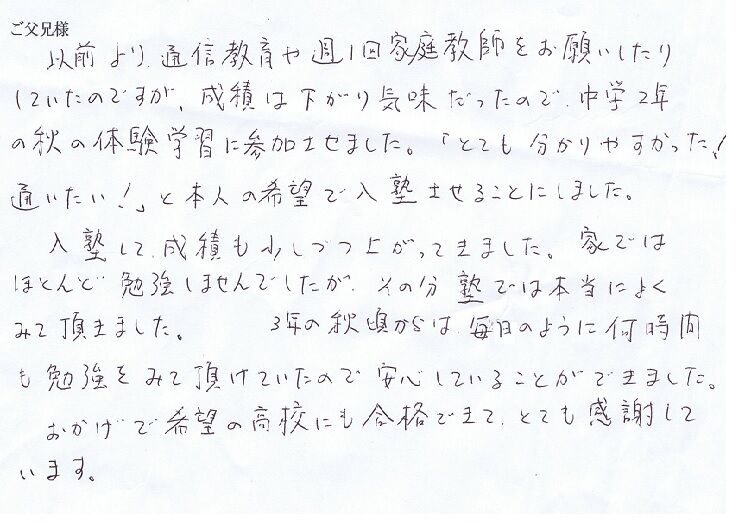 ご父兄様
以前より、通信教育や週1回家庭教師をお願いしたり
していたのですが、成績は下がり気味だったので、中学2年
の秋の体験学習に参加させました。「とても分かりやすかった!
通いたい!」と本人の希望で入塾させることにしました。
入塾して、成績も少しづつ上がってきました。家では
ほとんど勉強しませんでしたが、その分塾では本当によく
みて頂きました。 3年の秋頃からは、毎日のように何時間
も勉強をみて頂けていたので安心していることができました。
おかげで希望の高校にも合格できて、とても感謝して
います。